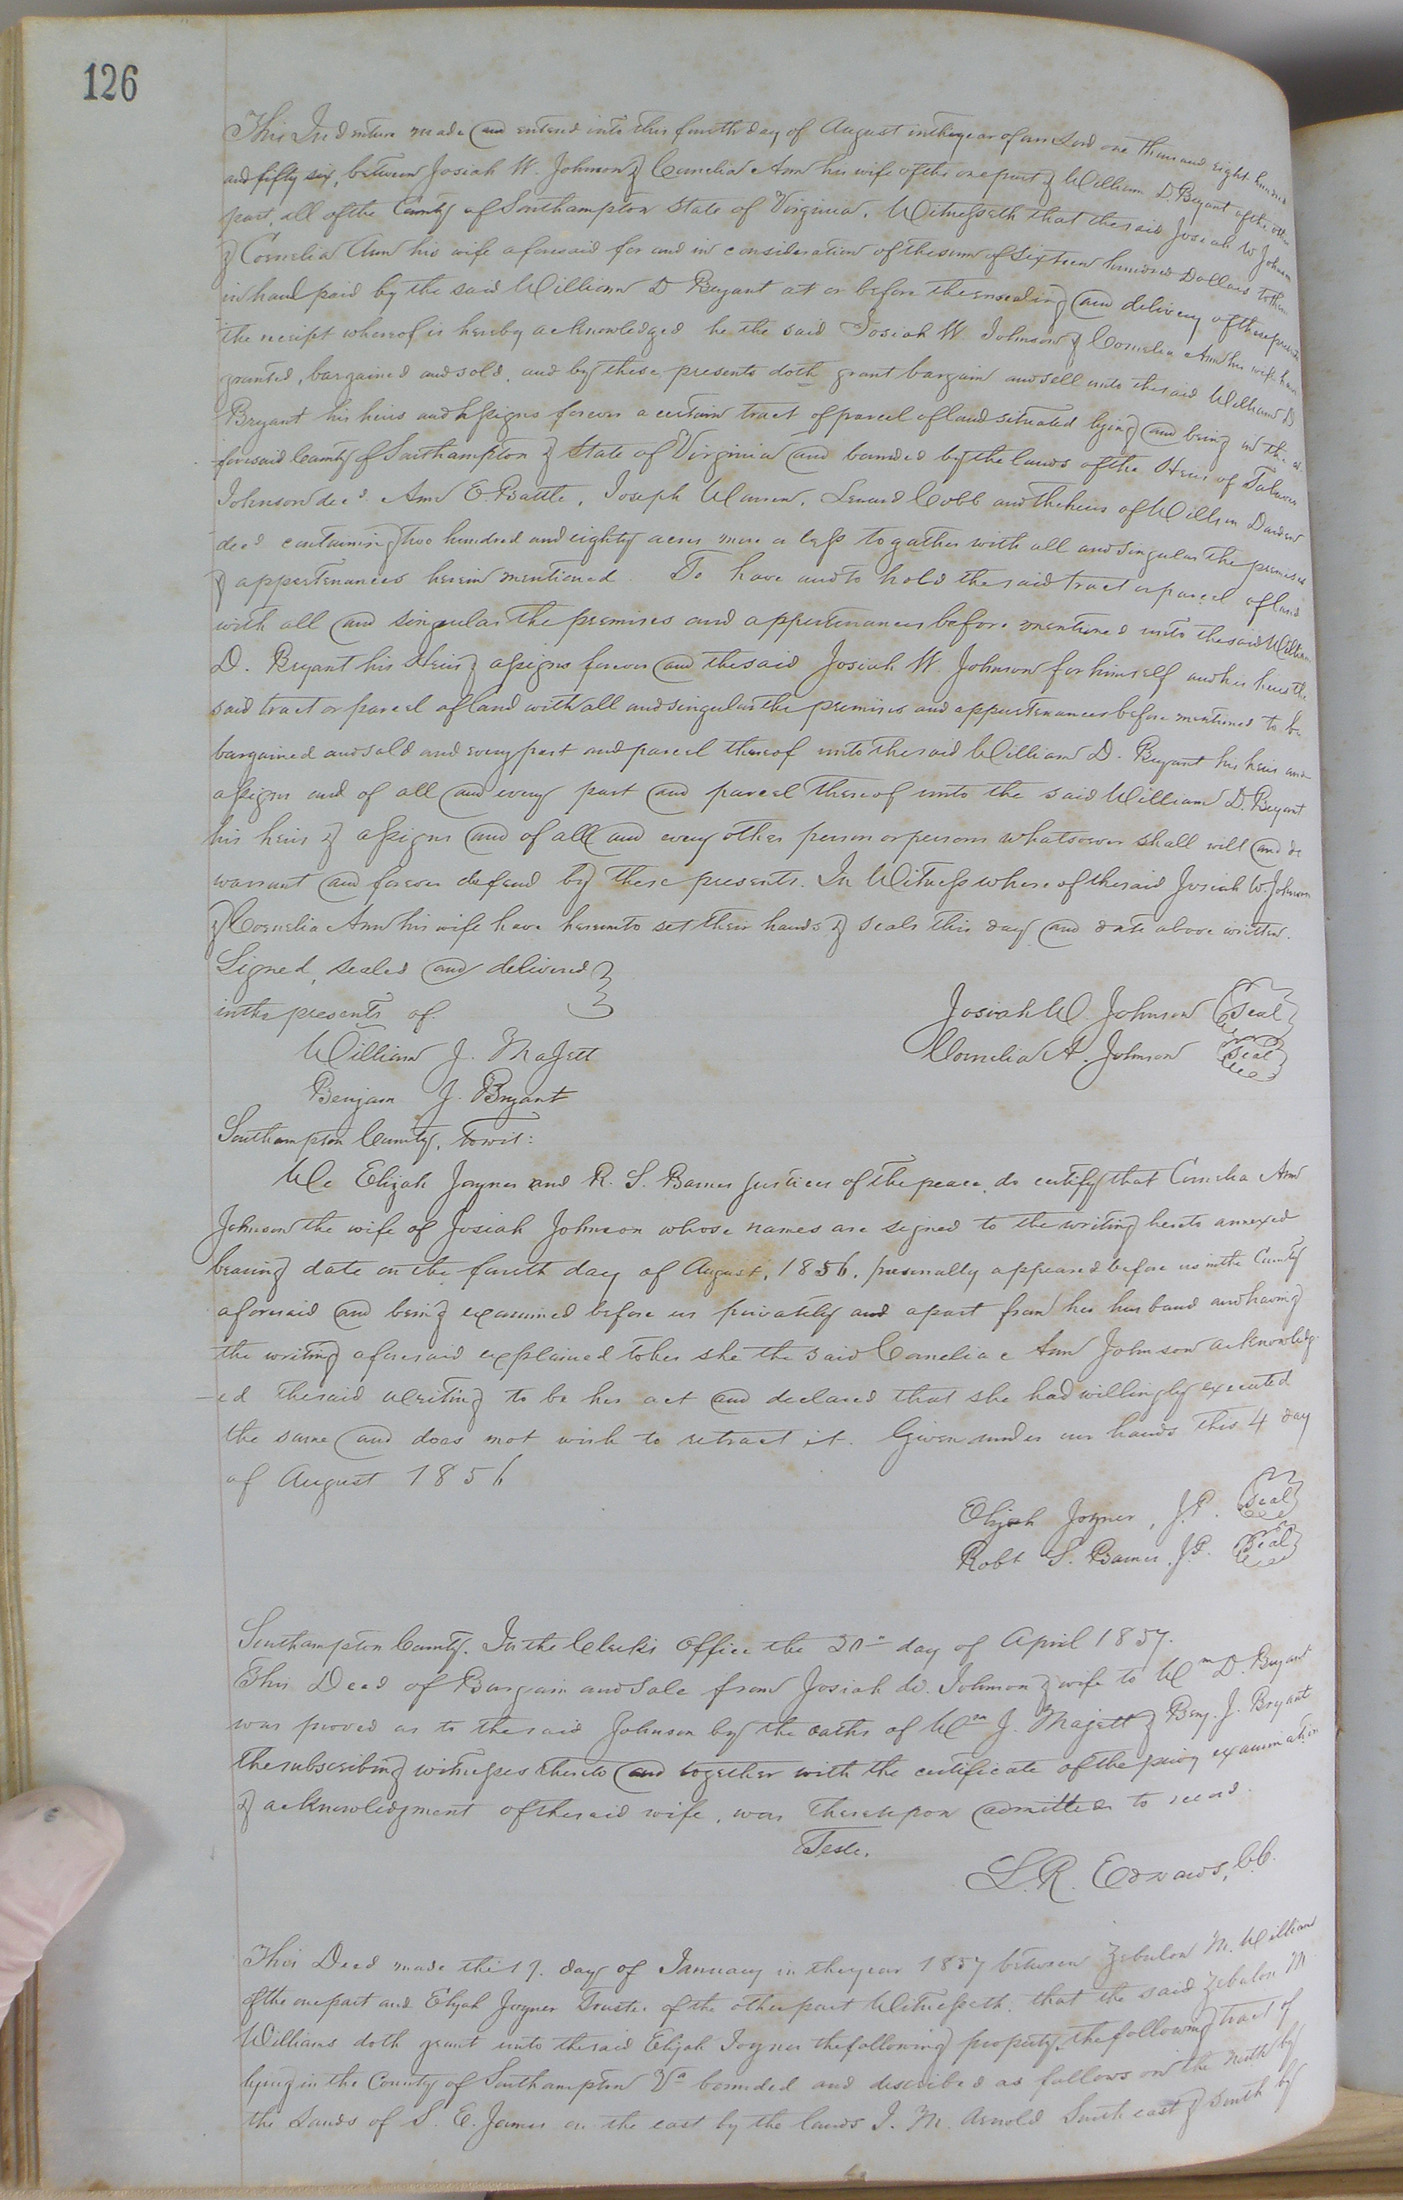 126
This Indenture made and entered into this fourth day of August in the year of our Lord one thousand eight hundred
and fifty six, between Josiah W. Johnson & Cornelia Ann his wife of the one part & William D. Bryant of the other
part, all of the County of Southampton State of Virginia. Witnesseth that the said Josiah W Johnson
& Cornelia Ann his wife aforesaid for and in consideration of the sum of Sixteen hundred Dollars to them
in hand paid by the said William D Bryant at or before the ensealing and delivery of these presents
the receipt whereof is hereby acknowledged he the said Josiah W. Johnson & Cornelia Ann his wife have
granted, bargained and sold, and by these presents doth grant bargain and sell unto the said William D
Bryant his heirs and assigns forever a certain tract of parcel of land situated lying and being in the a-
foresaid County of Southampton & State of Virginia and bounded by the lands of the Heirs of
Johnson decd. Ann E Battle, Joseph Warren, Cobb and the heirs of William Darden
decd containing two hundred and eighty acres more or less together with all and singular the premises
& appertenances herein mentioned. To have and to hold the said tract or parcel of land
with all and singular the premises and appertenances before mentioned unto the said William
D. Bryant his Heirs & assigns forever and the said Josiah W. Johnson for himself and his heirs the
said tract or parcel of land with all and singular the premises and appertenances before mentioned to be
bargained and sold and every part and parcel thereof unto the said William D. Bryant his heirs and
assigns and of all and every part and parcel thereof unto the said William D. Bryant
his heirs & assigns and of all and every other person or persons whatsoever shall will and do
warrant and forever defend by these presents. In Witness whereof the said Josiah W. Johnson
& Cornelia Ann his wife have hereunto set their hands & seals this day and date above written.
Signed, sealed and delivered
in the presents of
Josiah W. Johnson Seal
William J. Majett
Cornelia A. Johnson Seal
Benjam J. Bryant
Southampton County, towit:
We Elijah Joyner and R. S. Barnes Justices of the peace, do certify that Cornelia Ann
Johnson the wife of Josiah Johnson whose names are signed to the writing hereto annexed
bearing date on the fourth day of August, 1856, personally appeared before us in the County
aforesaid and being examined before us privately and apart from her husband and having
the writing aforesaid explained to her she the said Cornelia Ann Johnson acknowledg-
-ed the said writing to be her act and declared that she had willingly executed
the same and does not wish to retract it. Given under our hands this 4 day
of August 1856
Elijah Joyner, J.P. Seal
Robt S. Barnes, J.P. Seal
Southampton County. In the Clerk's Office the day of April 1857.
This Deed of Bargain and Sale from Josiah W. Johnson & wife to Wm D. Bryant
was proved as to the said Johnson by the oaths of Wm J. Majett & Benj. J. Bryant
the subscribing witnesses thereto and together with the certificate of the privy examination
& acknowledgment of the said wife, was thereupon admitted to record.
Teste,
L. R. Edwards, C.C.
This Deed made the 17. day of January in the year 1857 between Zebulon M. Williams
of the one part and Elijah Joyner Trustee of the other part Witnesseth, that the said Zebulon M
Williams doth grant unto the said Elijah Joyner the following property, the following tract of
lying in the County of Southampton Va bounded and described as follows on the North by
the Lands of S. E. James on the east by the lands J. M. Arnold South east & South by